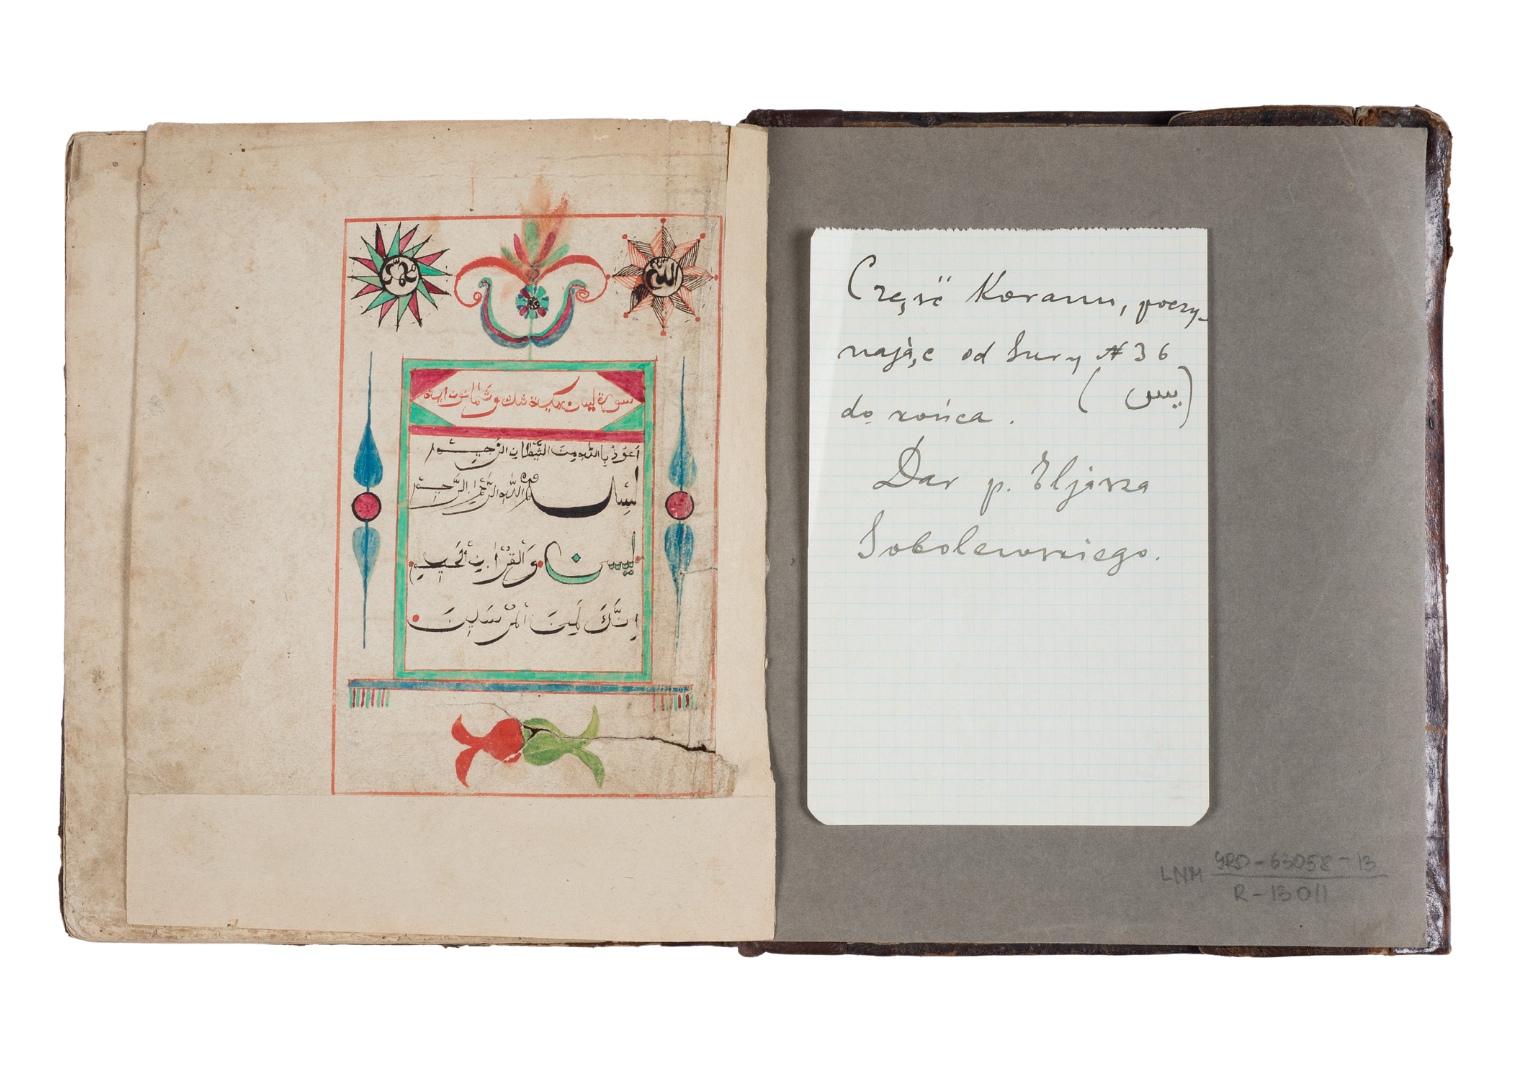 محمد
الله
سورة يس مكية ثلث وثمانون اية
اعوذ بالله من الشيطان الرجيم
بسم الله الرحمن الرحيم
يس والقران الحكيم
انك لمن المرسلين
Część Koranu, poczy-
nając od Sury № 36
(يس)
do końca.
Dar p. Eljasza
Sobolewskiego.
LNM GRD-63058-13
R-13011